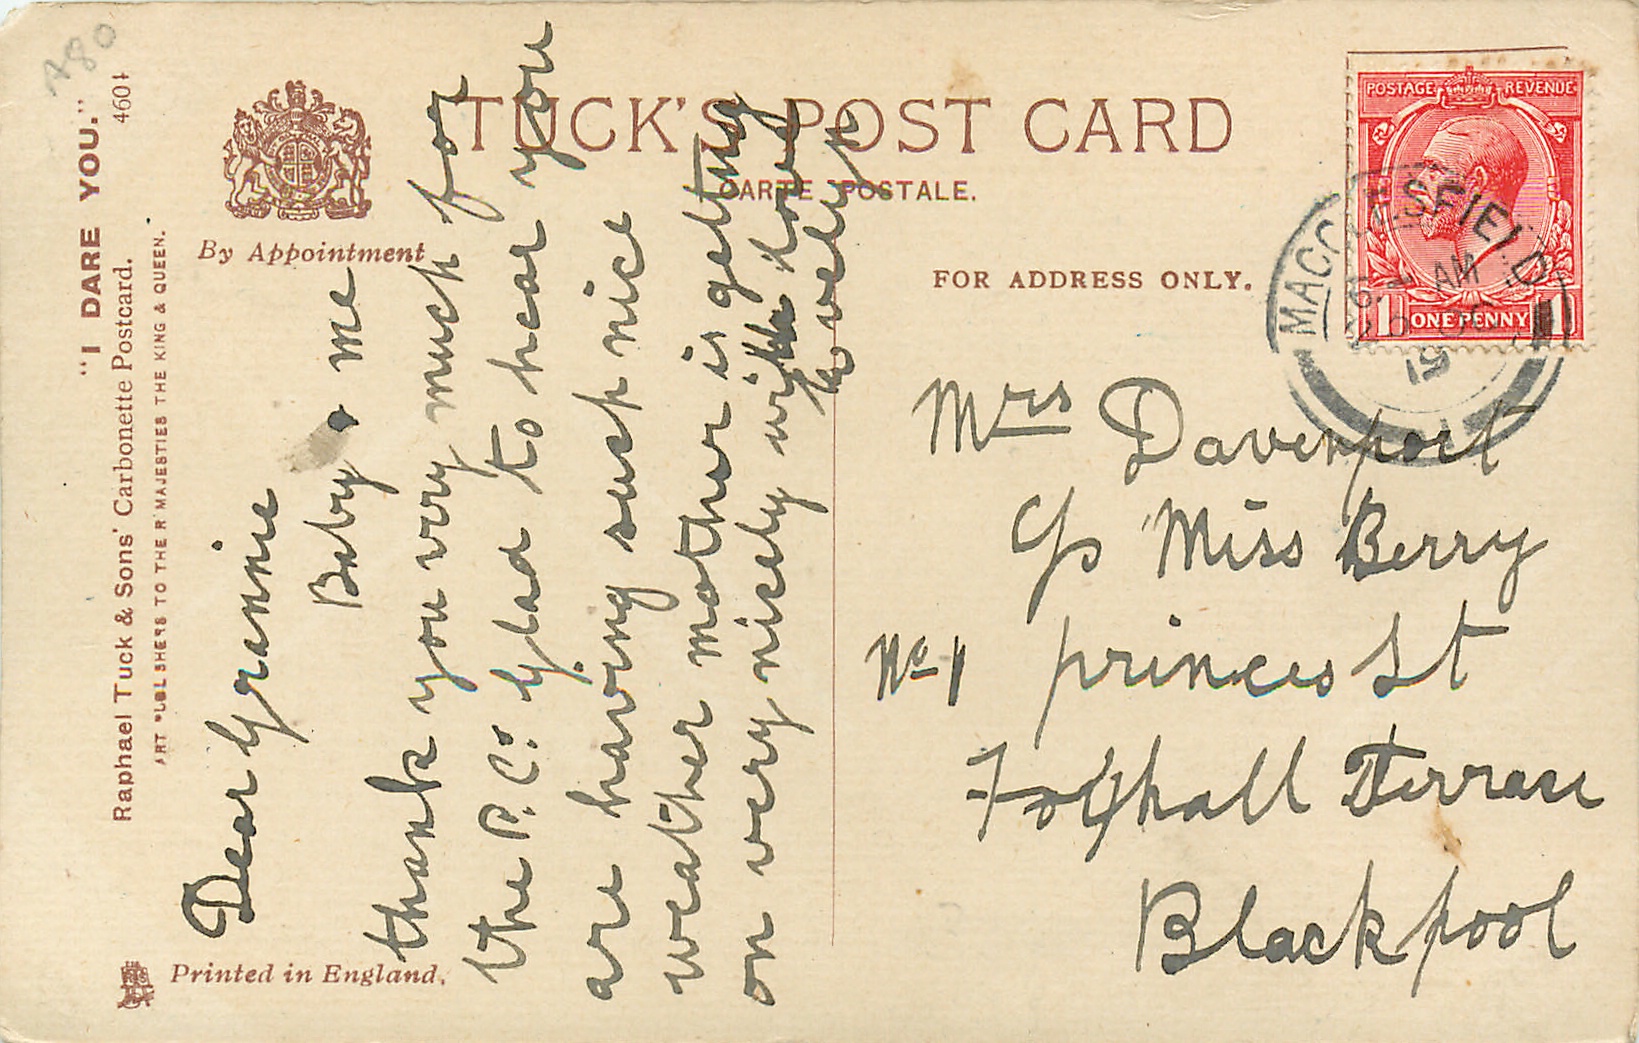 A80
"I DARE YOU."
4601
Raphael Tuck & Sons' Carbonette Postcard.
ART PUBLISHERS TO THEIR MAJESTIES THE KING & QUEEN.
By Appointment
Printed in England.
TUCK'S POST CARD
CARTE POSTALE.
FOR ADDRESS ONLY.
POSTAGE REVENUE
1 ONE PENNY 1
MACCLESFIELD
AM
19
Dear Grannie
Baby & me
thank you very much for
the P.C. Glad to hear you
are having such nice
weather mother is getting
on very nicely with love
Mrs Davenport
c/o Miss Berry
No 1 princes St
Foxhall Terrace
Blackpool